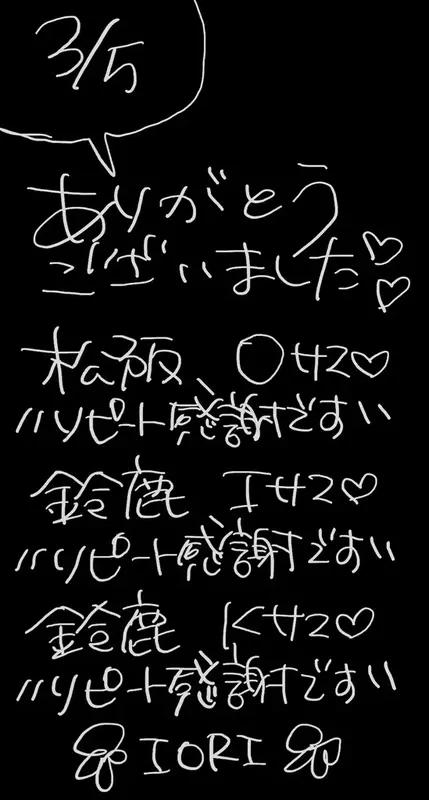 3/5
ありがとう
ございました♡♡
松阪 Oサマ♡
〃リピート感謝です〃
鈴鹿 Iサマ♡
〃リピート感謝です〃
鈴鹿 Kサマ♡
〃リピート感謝です〃
IORI